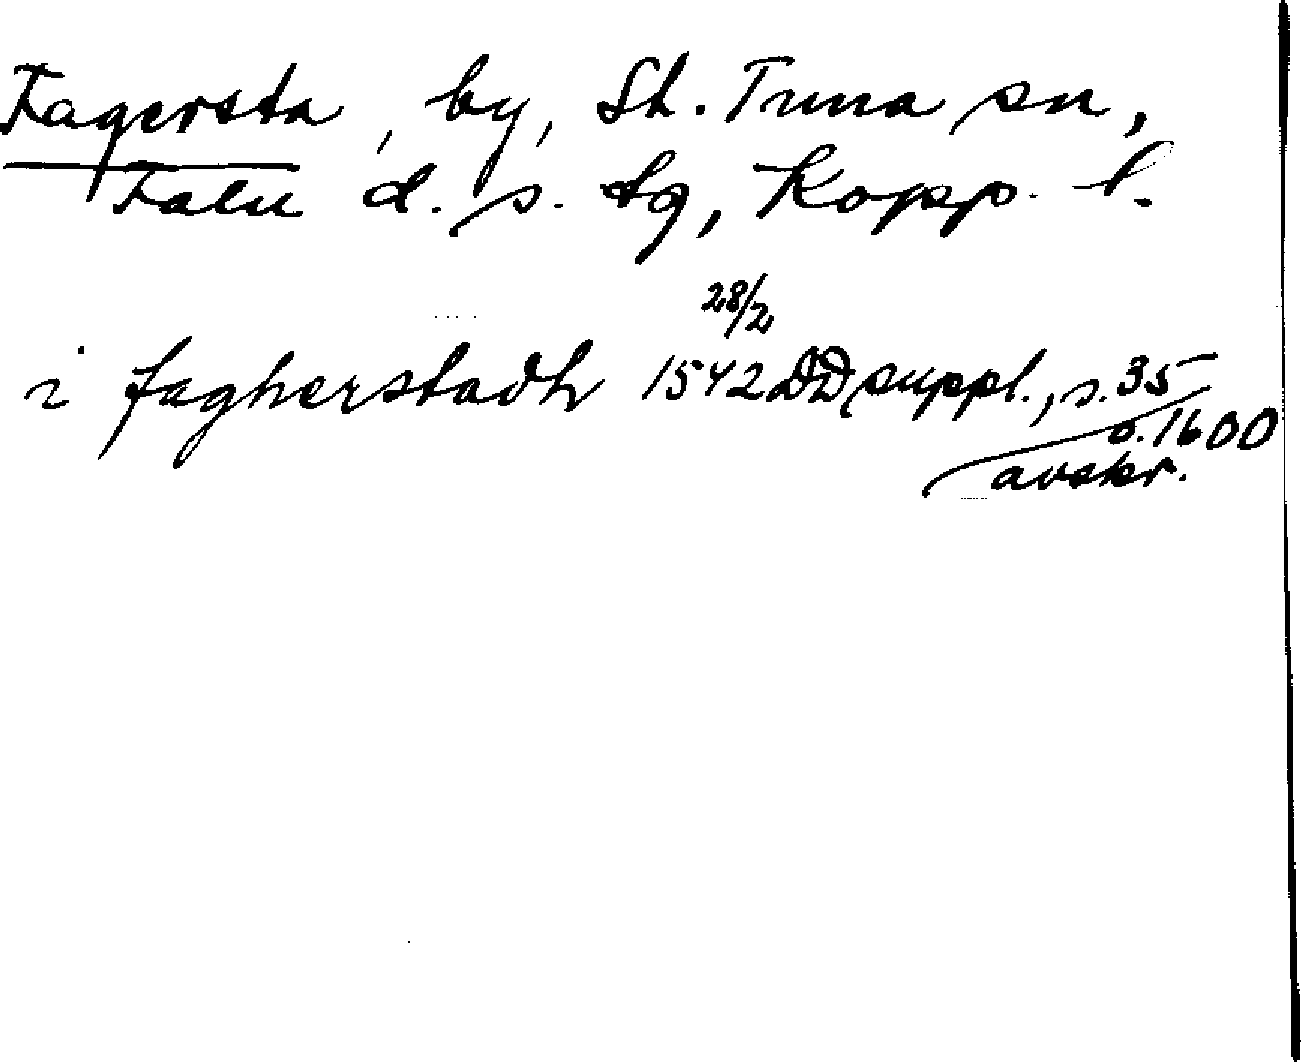 Fagersta, by, St. Tuna sn,
Falu d. s. tg, Kopp. l.
28/2
i fagherstadh 1542 DD suppl., s. 35
o. 1600
avskr.